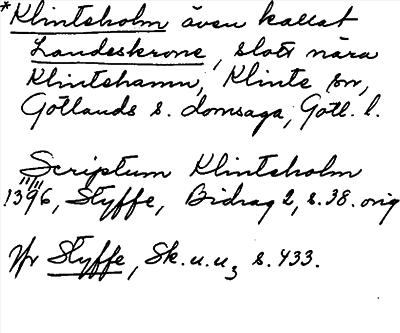 *Klintsholm även kallat
Landeskrone, slott nära
Klintehamn, Klinte sn,
Gotlands s. domsaga, Gotl. l.
Scriptum Klintsholm
13 11/11 96, Styffe, Bidrag 2, s. 38. orig
Jfr Styffe, Sk.u.u3 s. 433.